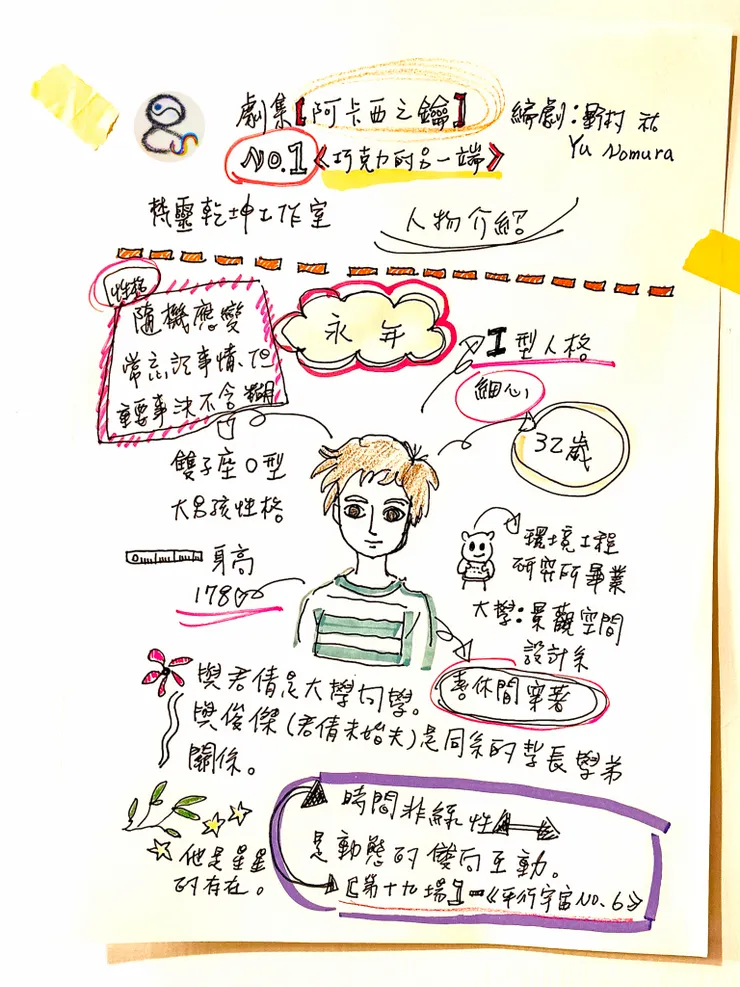 劇集【阿卡西之鑰】
編劇：野村 祐
Yu Nomura
NO.1《巧克力的另一端》
梵靈乾坤工作室
人物介紹
性格
隨機應變
常忘記事情、但
重要事決不含糊
永年
I型人格
細心
32歲
雙子座O型
大男孩性格
身高
178
環境工程
研究所畢業
大學：景觀空間
設計系
喜休閒穿著
與君倩是大學同學。
與俊傑（君倩未婚夫）是同系的學長學弟
關係。
他是星星
的存在。
時間非線性
是動態的雙向互動。
【第十九場】-《平行宇宙NO.6》